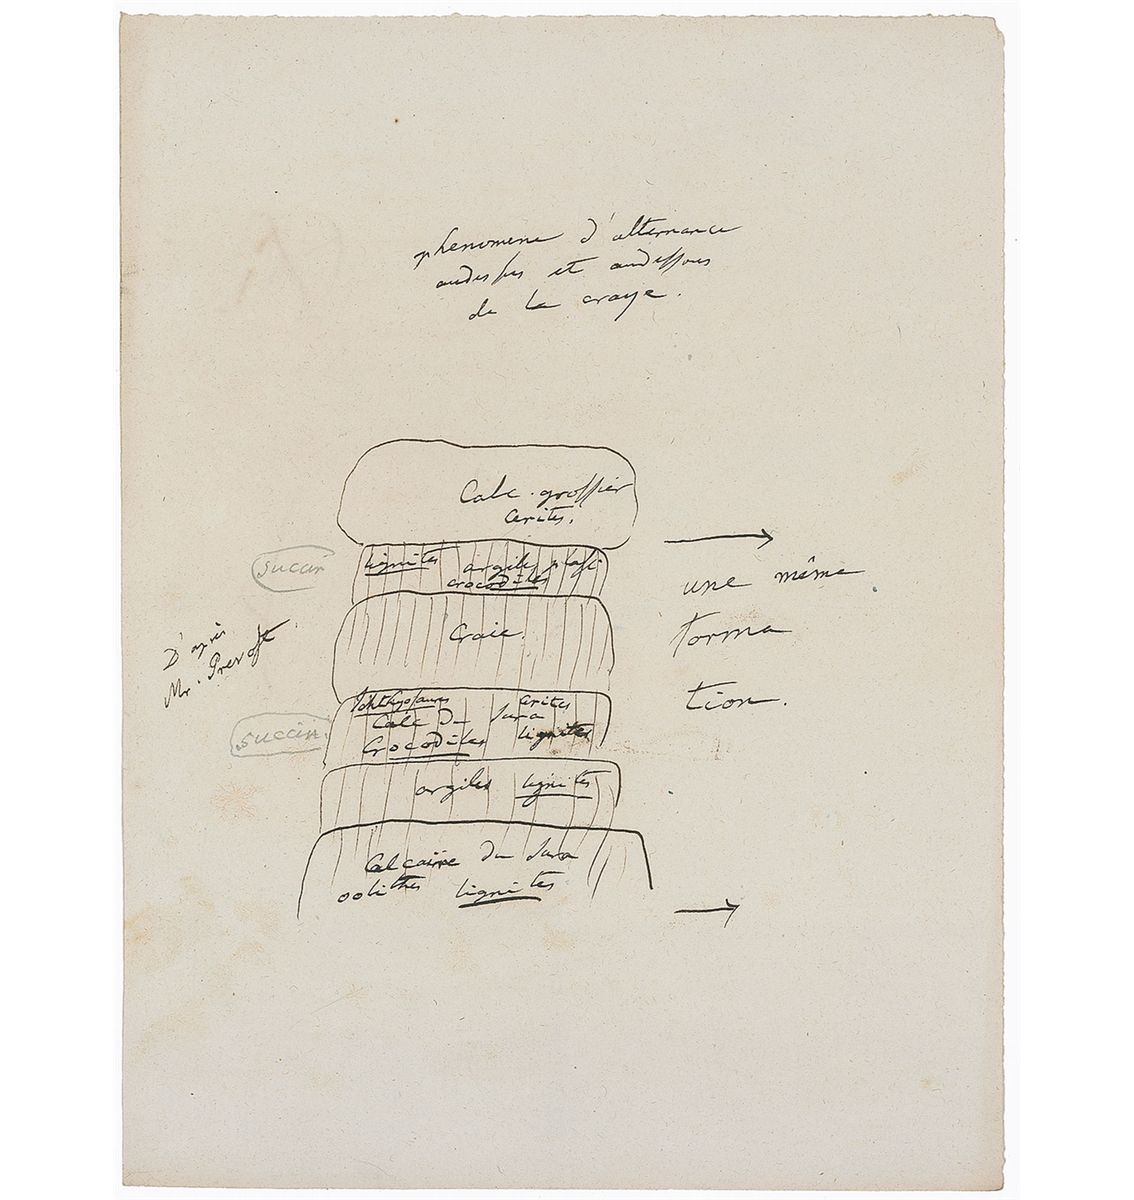 phenomene d'alternance
audessus et audessous
de la craye.
Calc. grossier
cerites.
succin
lignites argiles plast
crocodiles
une même
forma
tion.
Craie.
D'après
Mr. Prevost
Ichthyosaures cerites
Calc du Jura lignites
Crocodiles
succin.
argiles lignites
Calcaire du Jura
oolithes lignites